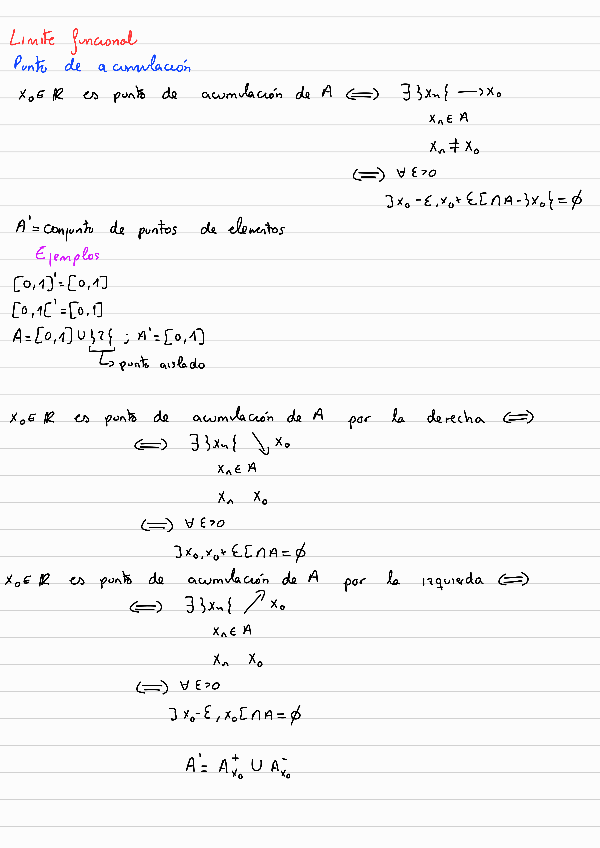 Limite funcional
Punto de acumulación
x₀∈ℝ es punto de acumulación de A ⟺ ∃ }xₙ{ ⟶x₀
xₙ∈A
xₙ≠x₀
⟺ ∀ε>0
]x₀-ε,x₀+ε[∩A-}x₀{=∅
A'=conjunto de puntos de elementos
Ejemplos
[0,1]'=[0,1]
[0,1['=[0,1]
A=[0,1]∪}2{ ; A'=[0,1]
↳ punto aislado
x₀∈ℝ es punto de acumulación de A por la derecha ⟺
⟺ ∃ }xₙ{ ↘ x₀
xₙ∈A
xₙ x₀
⟺ ∀ε>0
]x₀,x₀+ε[∩A=∅
x₀∈ℝ es punto de acumulación de A por la izquierda ⟺
⟺ ∃ }xₙ{ ↗ x₀
xₙ∈A
xₙ x₀
⟺ ∀ε>0
]x₀-ε,x₀[∩A=∅
A'= A⁺ₓ₀ ∪ A⁻ₓ₀